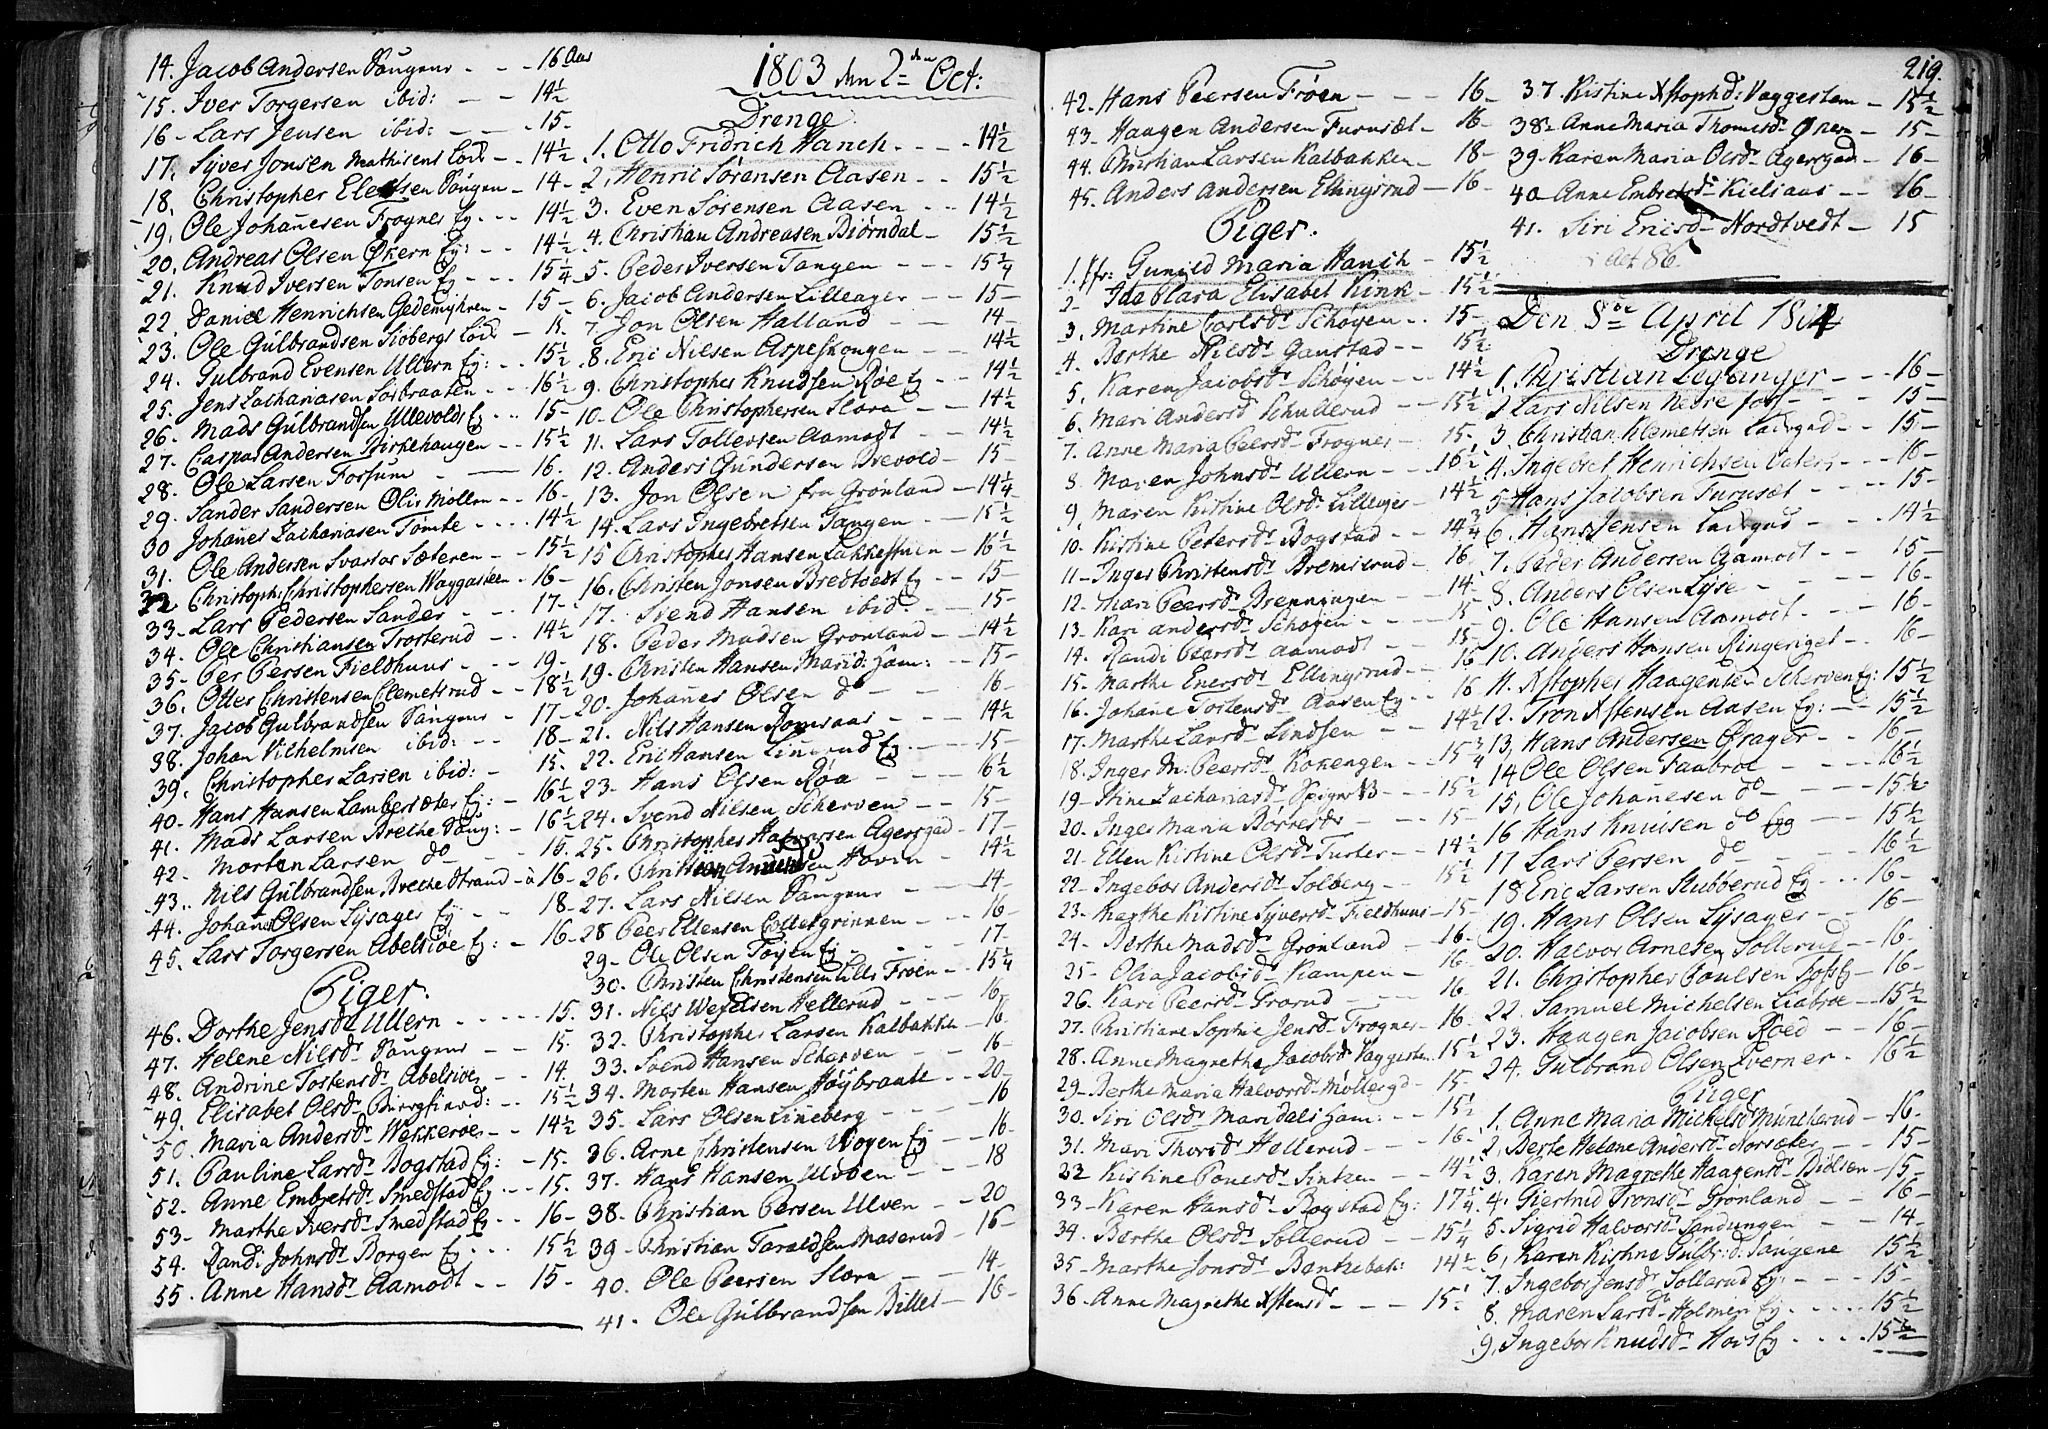 14. Jacob Andersen Sougnus - - - 16 Aar
15. Iver Torgersen ibid: - - 14 1/2
16 - Lars Jensen ibid: - - - 15 -
17. Syver Jonsen Mathisens Lød - - 14 1/2
18. Christopher Elefsen Sougnu - 14 -
19. Ole Johañesen Frogner Eg. - - - 14 1/2
20. Andreas Olsen Økern Eg: - - 14 1/2
21. Knud Iversen Tonsen Eg - - - 15 1/4
22. Daniel Henrichsen Gedemyhren - 15 -
23. Ole Gulbrandsen Siøbergs Lød - 15.
24. Gulbrand Evensen Ullern Eg: - - 15 1/2
25. Jens Zachariasen Sørbraaten - - 16 1/2
26. Mads Gulbrandsen Ullevolds Eg - - 15 -
27. Caspar Andersen Kirkehaugen - - 15 1/2
28. Ole Larsen Fossum - — 16.
29. Sander Sandersen Olis Møllen - - 16 -
30 Johañes Zachariasen Tømte - - - - 14 1/2
31. Ole Andersen Svartor Sæteren - - 15 1/2
32 Christoph: Christophersen Waggesteen - 16 -
33 - Lars Pedersen Sander - - - 17 -
34. Ole Christiansen Trosterud - - 14 1/2
35 - Per Persen Fieldhuus - - - 19 -
36. Otter Christensen Clemetsrud - - 18 1/2
37. Jacob Gulbrandsen Sougnus - 17 -
38. Johan Vilhelmsen ibid: - - 18 -
39. Christopher Larsen ibid: - 15.
40 - Hans Hansen Lambersæter Eg: - 16 1/2
41. Mads Larsen Brekke Soug: - 16 1/2
42 - Morten Larsen do - - - 16.
43. Nils Gulbrandsen Brekke Strand - 16 -
44. Johan Olsen Lysager Eg - - - 18.
45. Lars Torgersen Abelsiøe Eg: - 16 -
Piger.
46. Dorthe Jensdr Ullern - - - - - 15.
47. Helene Nilsdr Sougnus - - 15.
48. Andrine Tostensdr Abelsiøe - - 14.
49. Elisabet Olsdr - - 15 1/2
50. Maria Andersdr Wækkerøe - - 14 1/2
51. Pauline Larsdr Bogstad Eg: - 15.
52. Anne Embretsdr Smedstad Eg - - - 15.
53 - Marthe Iversdr Smedstad Eg - - 16 -
54. Randi Johnsdr Borgen Eg - - - 15 1/2
55. Anne Hansdr Aamodt - - 15 -
1803 den 2den Oct:
Drenge
1. Otto Fridrich Hanch - - - - 14 1/2
2. Henric Sørensen Aasen - - 15 1/2
3. Even Sørensen Aasen - - 14 1/2
4. Christian Andreasen Biørndal - 15 1/2
5. Peder Iversen Tangen - - - 15 3/4
6. Jacob Andersen Lilleager - - 15 -
7. Jon Olsen Halland - — 14 -
8. Eric Nilsen Aspeskougen - - 14 1/2
9. Christopher Knudsen Røe Eg - - 14 1/2
10 - Ole Christophersen Slora - - 14 1/2
11. Lars Tollersen Aamodt - - 14 1/2
12. Anders Gundersen Brevold - 15 -
13. Jon Olsen fra Grønland - 14 1/4
14. Lars Ingebretsen Tangen - - 15 1/2
15 Christopher Hansen Lakkestuen - 16 1/2
16. Christen Jonsen Bredtvedt Eg - - 15 -
17. Svend Hansen ibid - - 15 -
18. Peder Madsen Grønland - - 14 1/2
19. Christen Hansen Marid: Ham: - - 15 -
20. Johañes Olsen do - - - 16 -
21. Nils Hansen Romsaas - - - 14 1/2
22. Eric Hansen Linerud Eg - - - 15 -
23. Hans Olsen Røa - - - - 16 1/2
24. Svend Nilsen Scherven - - 15 -
25. Christopher Halvorsen Agersgad - 17 -
26. Christian Hovin - 14 1/2
27. Lars Nilsen Sougnus - - - 14 -
28 Peer Ellensen Colletgrinnen - - - 16 -
29 - Ole Olsen Tøyen Eg - - - - 17.
30. Christen Christensen Lille Frøen - - 15 1/4
31. Nils Wefelsen Hellerud - - - 16.
32. Christopher Larsen Kalbakke - 16.
33. Svend Hansen Scherven - - 16 -
34. Morten Hansen Høybraate - - 20 -
35. Lars Olsen Lineberg - - - - 16
36. Arne Christensen Woyen Eg - - 16 -
37. Hans Hansen Ulvøen - - - 18
38. Christian Persen Ulven - - 20
39 - Christian Taraldsen Maserud - 16 -
40. Ole Peersen Slora - - 14 -
41. Ole Gulbrandsen Billet - 16 -
219.
42. Hans Peersen Frøen - - - 16 -
43. Haagen Andersen Furusæt - 16 -
44. Christian Larsen Kalbakken - 18 -
45. Anders Andersen Ellingsrud - 16 -
Piger.
1. Jfr: Gunild Maria Hanch - 15 1/2
2 - Ida Clara Elisabet Kink - 15 1/2
3. Martine Carlsdr Schøyen - - 15 -
4. Berthe Nilsdr Gaustad - - 15 1/2
5. Karen Jacobsdr Schøyen - - 14 1/2
6. Mari Andersd Schullerud - - 15 1/2
7. Anne Maria Peersdr Frogner - 15 -
8. Maren Johnsdr Ullern - - - 16 1/2
9. Maren Kistine Olsdr Lilleager - 14 1/2
10. Kistine Petersdr Bogstad - - 14 3/4
11 - Inger Christensdr Bremsrud - 16
12 - Mari Peersdr Brenningen - - - 14 -
13 - Kari Andersdr Schøyen - - - - 15
14. Randi Peersdr Aamodt - - - 15 -
15 - Marthe Enersdr Ellingsrud - - 16
16. Johañe Tostensdr Aasen Eg - - 16
17 - Marthe Larsdr Lindsen - - 14 1/2
18. Inger M: Peersdr Kokengen - - 15 3/4
19 - Stine Zachariasdr - - - 15 1/2
20. Inger Maria Børresdr - - - 15 -
21. Ellen Kistine Olsdr Turter - - 14 1/2
22 - Ingebor Andersdr Solberg - - 15 1/2
23 - Marthe Kistine Syversdr Fieldhuus - 15 -
24 - Berthe Madsdr Grønland - 16 -
25 - Olia Jacobsdr Kampen - 16.
26. Kari Peersdr Grorud - - - 16
27. Christiane Sophie Jensdr Frogner - 16.
28. Anne Magrethe Jacobsdr Vaggesten - 15 1/2
29 - Berthe Maria Halvorsdr Møllergd - 15 -
30. Siri Olsdr Maridals Ham: - - 15 1/2
31. Mari Thorsdr Hellerud - - - 16 -
32 Kistine Povelsdr Sinken - - - 14 1/2
33 - Karen Hansdr Bogstad Eg: 17 1/4
34. Berthe Olsdr Sollerud - - 15 1/4
35 - Marthe Jonsdr Bænkebak: 14 1/2
36. Anne Magrethe Xstensdr - - - 15 1/2
37. Kistine Xstophdr: Vaggesten - 15 1/2
38 - Anne Maria Thomesdr Økern - 15 -
39. Karen Maria Olsdr Agersgad - 16 -
40 - Anne Embretsdr Kielsaas - - 16 -
41. Siri Ericsdr Nordtvedt - 15
86.
Den 8de April 1804
Drenge
1. Christian Leganger - - - 16 -
2 Lars Nilsen Nedre fos - - - 15 -
3. Christian Klemetsen Ladegad - - 15 -
4. Ingebret Henrichsen - - - 16 -
5 Hans Jacobsen Furusæt - - - - 15 -
6. Hans Jensen Ladegad - - - 14 1/2
7. Peder Andersen Aamodt - - 15 -
8. Anders Olsen Lyse - - - - 16 -
9. Ole Hansen Aamodt - - - 16 -
10. Anders Hansen Ringeriget - - 16 -
11. Xstopher Haagensen Scherven Eg: 15 1/2
12. Tron Xstensen Aasen Eg: - - 15 1/2
13, Hans Andersen Brager - - 16 -
14 Ole Olsen Faabroe - - - - 16 1/2
15, Ole Johañesen do - - - - 15 1/2
16 Hans Knudsen do Eg - - - 15 1/2
17 Lars Persen do - - - - 16 1/2
18 Eric Larsen Stubberud Eg - - - 16 -
19. Hans Olsen Lysager - - 16 -
20. Halvor Arnesen Sollerud - - 16 -
21. Christopher Paulsen Eg - 16 -
22. Samuel Michelsen Liabroe - 15 1/2
23. Haagen Jacobsen Røed - - 16 -
24. Gulbrand Olsen Tverner - 16 1/2
Piger
1. Anne Maria Michelsdr Munckerud - 16 -
2. Berte Helene Andersdr Norsæter - - 15 -
3. Karen Magrethe Haagensdr Biølsen - 15 -
4. Giertrud Tronsdr Grønland - - 16 -
5. Sigrid Halvorsdr Sandungen - - 14 -
6, Karen Kistine Gulbrdr: Sougene 15 1/2
7. Ingebor Jensdr Sollerud Eg: - - - 15 -
8. Maren Larsdr Holmen Eg - - - - 15 1/2
9, Ingebor Knudsdr Hovs Eg - - - - 15 1/2